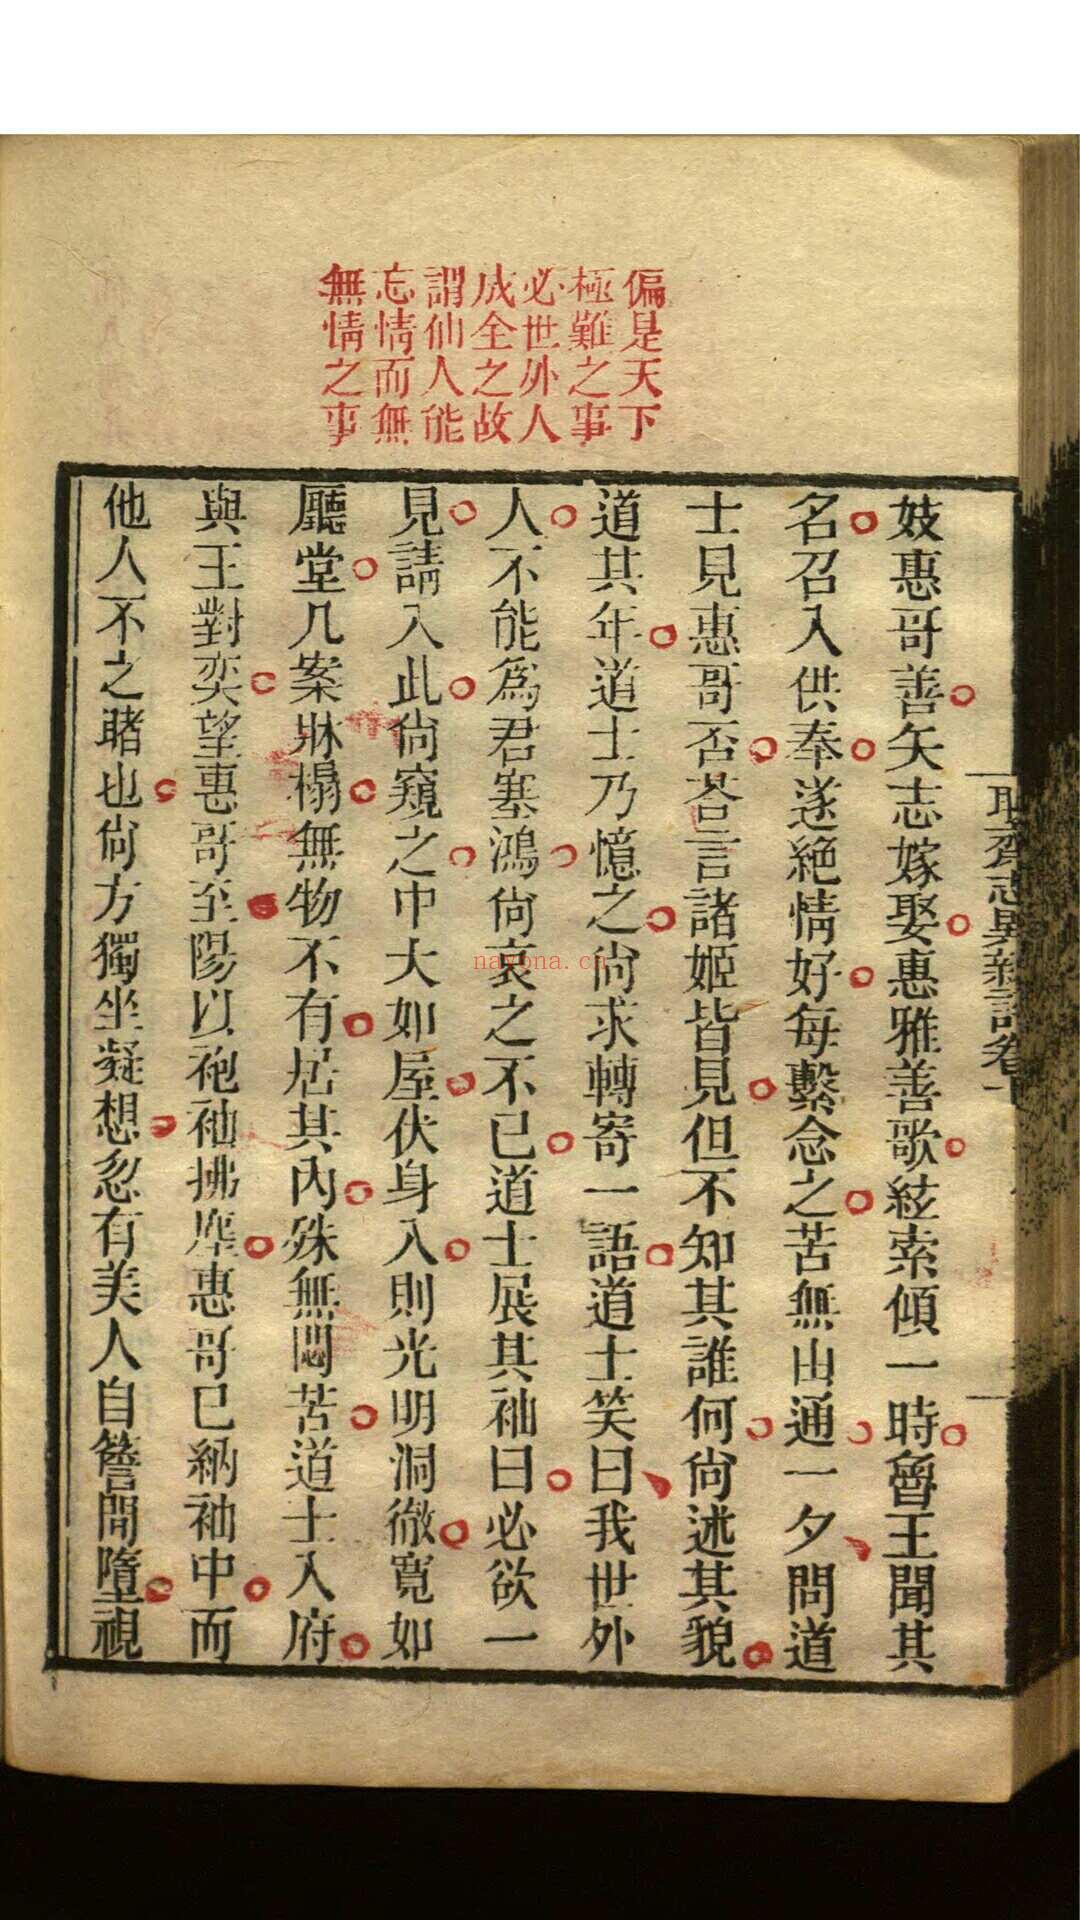 偏是天下
極難之事
必世外人
成全之故
謂仙人能
忘情而無
無情之事
聊齋志異新評卷十
妓惠哥善矢志嫁娶惠雅善歌絃索傾一時魯王聞其
名召入供奉遂絶情好每繫念之苦無由通一夕問道
士見惠哥否荅言諸姬皆見但不知其誰何尙述其貌
道其年道士乃憶之尙求轉寄一語道士笑曰我世外
人不能爲君塞鴻尙哀之不已道士展其袖曰必欲一
見請入此尙窺之中大如屋伏身入則光明洞徹寬如
廳堂几案牀榻無物不有居其內殊無悶苦道士入府
與王對奕望惠哥至陽以袍袖拂塵惠哥已納袖中而
他人不之睹也尙方獨坐凝想忽有美人自簷間墮視
nayona.cn